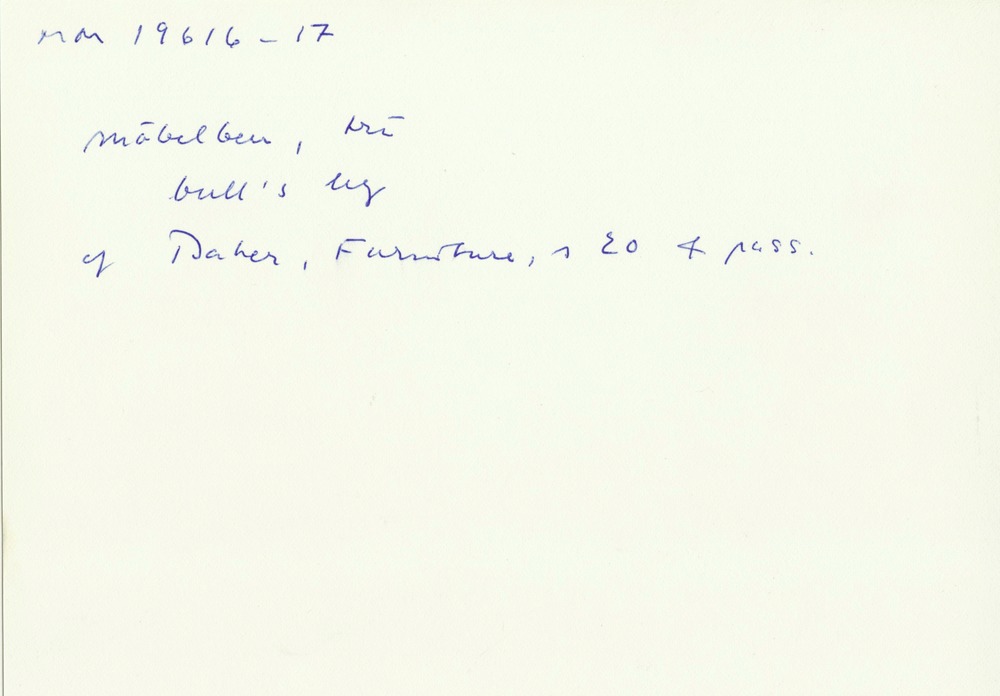 MM 19616-17
möbelben, trä
bull's leg
cf Baker, Furniture, s 20 & pass.